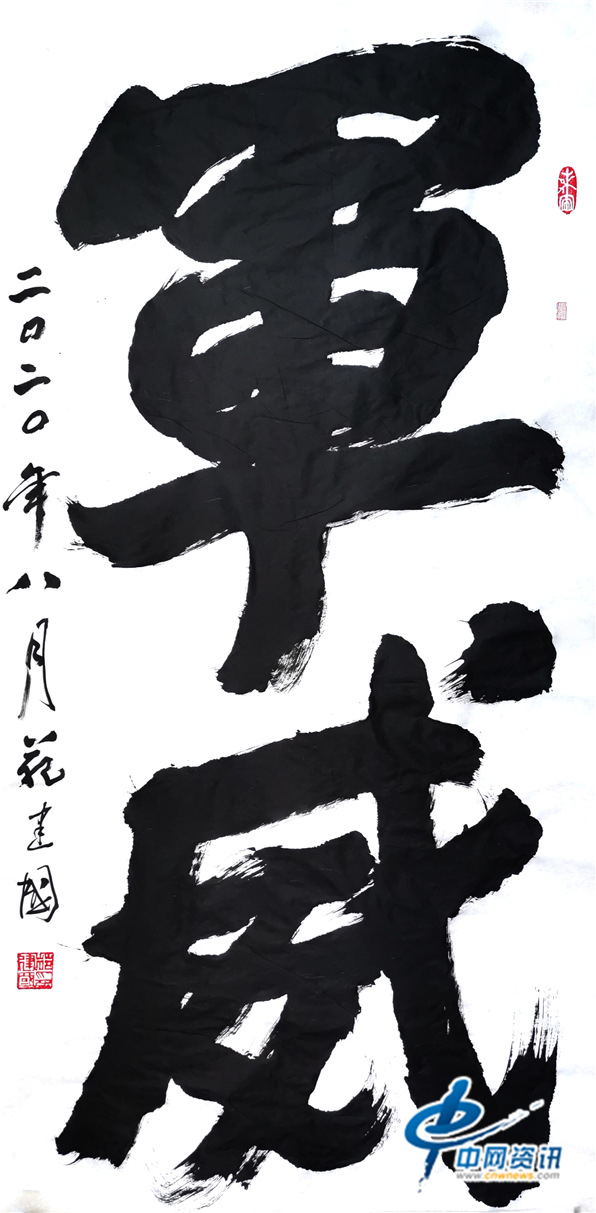 軍威
二〇二〇年八月 建國
中网资讯
www.cnwnews.com